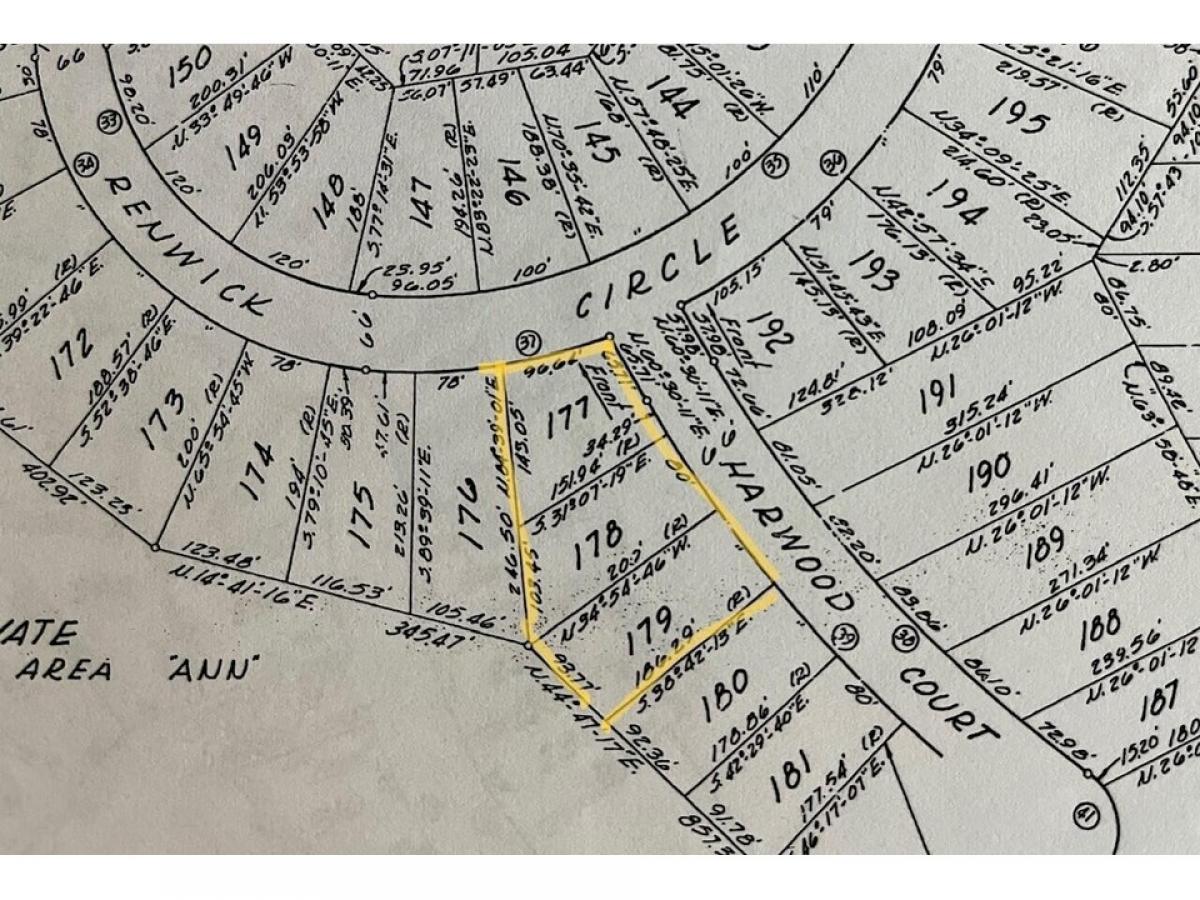 RENWICK
CIRCLE
HARWOOD
COURT
AREA "ANN"
150
200.31'
N.33°-49'-46"W
149
206.03'
N.53°53'-58"W.
148
188'
S.77°-14'-31"E.
147
194.26' (R)
N.83°-22'-23"E.
146
188.38' (R)
N.70°-35'-42"E.
145
168'
N.57°-48'-25"E.
(R)
144
66
90.20'
120'
120'
23.95'
96.05'
100'
100'
110'
105.04
71.96
56.07'
57.49'
63.44'
33
34
35
36
37
38
39
41
78'
66'
78'
78'
79'
79'
172
188.57' (R)
S.52°-38'-46"E.
173
200' (R)
N.65°-54'-45"W
174
194' (R)
S.79°-10'-45"E.
30.39'
175
213.26' (R)
S.89°-39'-11"E.
176
246.50'
N.84°-39'-01"E
145.05'
103.45'
96.62'
177
Front
34.29'
151.94' (R)
S.31°07'-19"E.
178
200' (R)
N.34°-54'-46"W.
80'
179
186.29' (R)
S.38°-42'-13"E.
93.77'
N.44°-47'-17"E.
180
178.86' (R)
S.42°-29'-40"E.
92.36'
80'
181
177.54' (R)
46°-17'-07"E.
91.78'
402.92'
123.25'
123.48'
N.14°-41'-16"E.
116.53'
105.46'
345.47'
195
219.57' (R)
N.34°-09'-25"E.
214.60' (R)
23.05'
194
N.42°-57'-34"E
176.13' (R)
193
N.51°-45'-43"E.
145.13' (R)
192
105.15'
37.98'
Front
72.66'
N.60°-30'-11"E.
65.71'
124.81'
108.09'
95.22'
N.26°-01'-12"W.
112.35
94.10'
55.60'
2.80'
86.75'
80'
89.42'
191
315.24'
N.26°-01'-12"W.
81.05'
190
296.41'
N.26°-01'-12"W.
189
271.34'
N.26°-01'-12"W
188
239.56'
N.26°-01'-12
86.10'
187
72.98'
15.20'